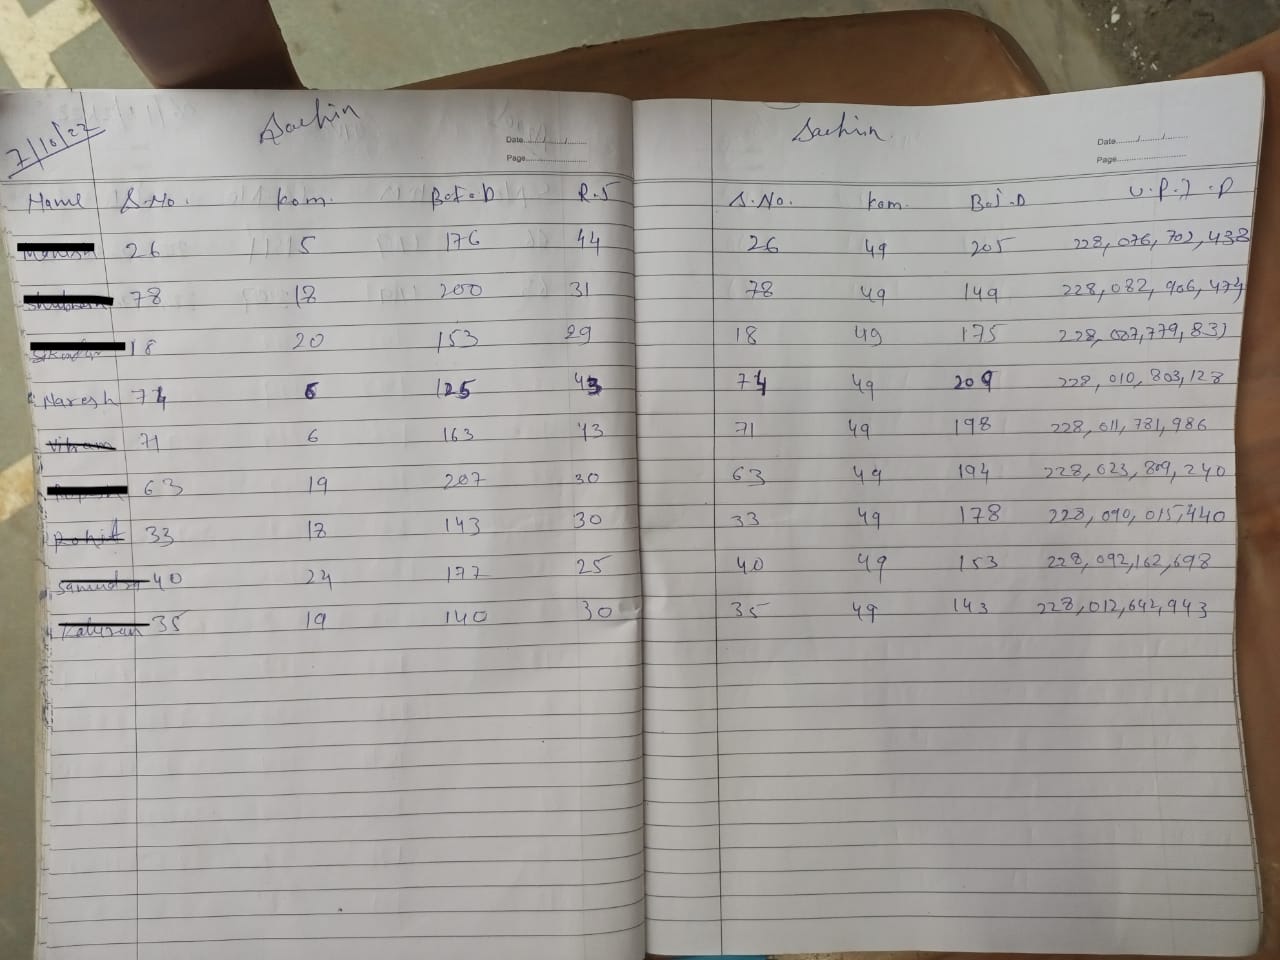 7/10/22
Sachin
Date
Page
Name S.No. Kom. Bat.D R.S
26 5 176 44
78 18 200 31
18 20 153 29
Naresh 74 6 125 43
Vikram 71 6 163 43
63 19 207 30
Rohit 33 18 143 30
40 24 177 25
Kaluram 35 19 140 30
Sachin
Date
Page
S.No. Kom. Bat.D U.P.I.D
26 49 205 228,076,702,438
78 49 149 228,082,906,474
18 49 175 228,087,779,831
74 49 209 228,010,803,128
71 49 198 228,011,781,986
63 49 194 228,023,809,240
33 49 178 228,090,015,440
40 49 153 228,092,162,698
35 49 143 228,012,642,943